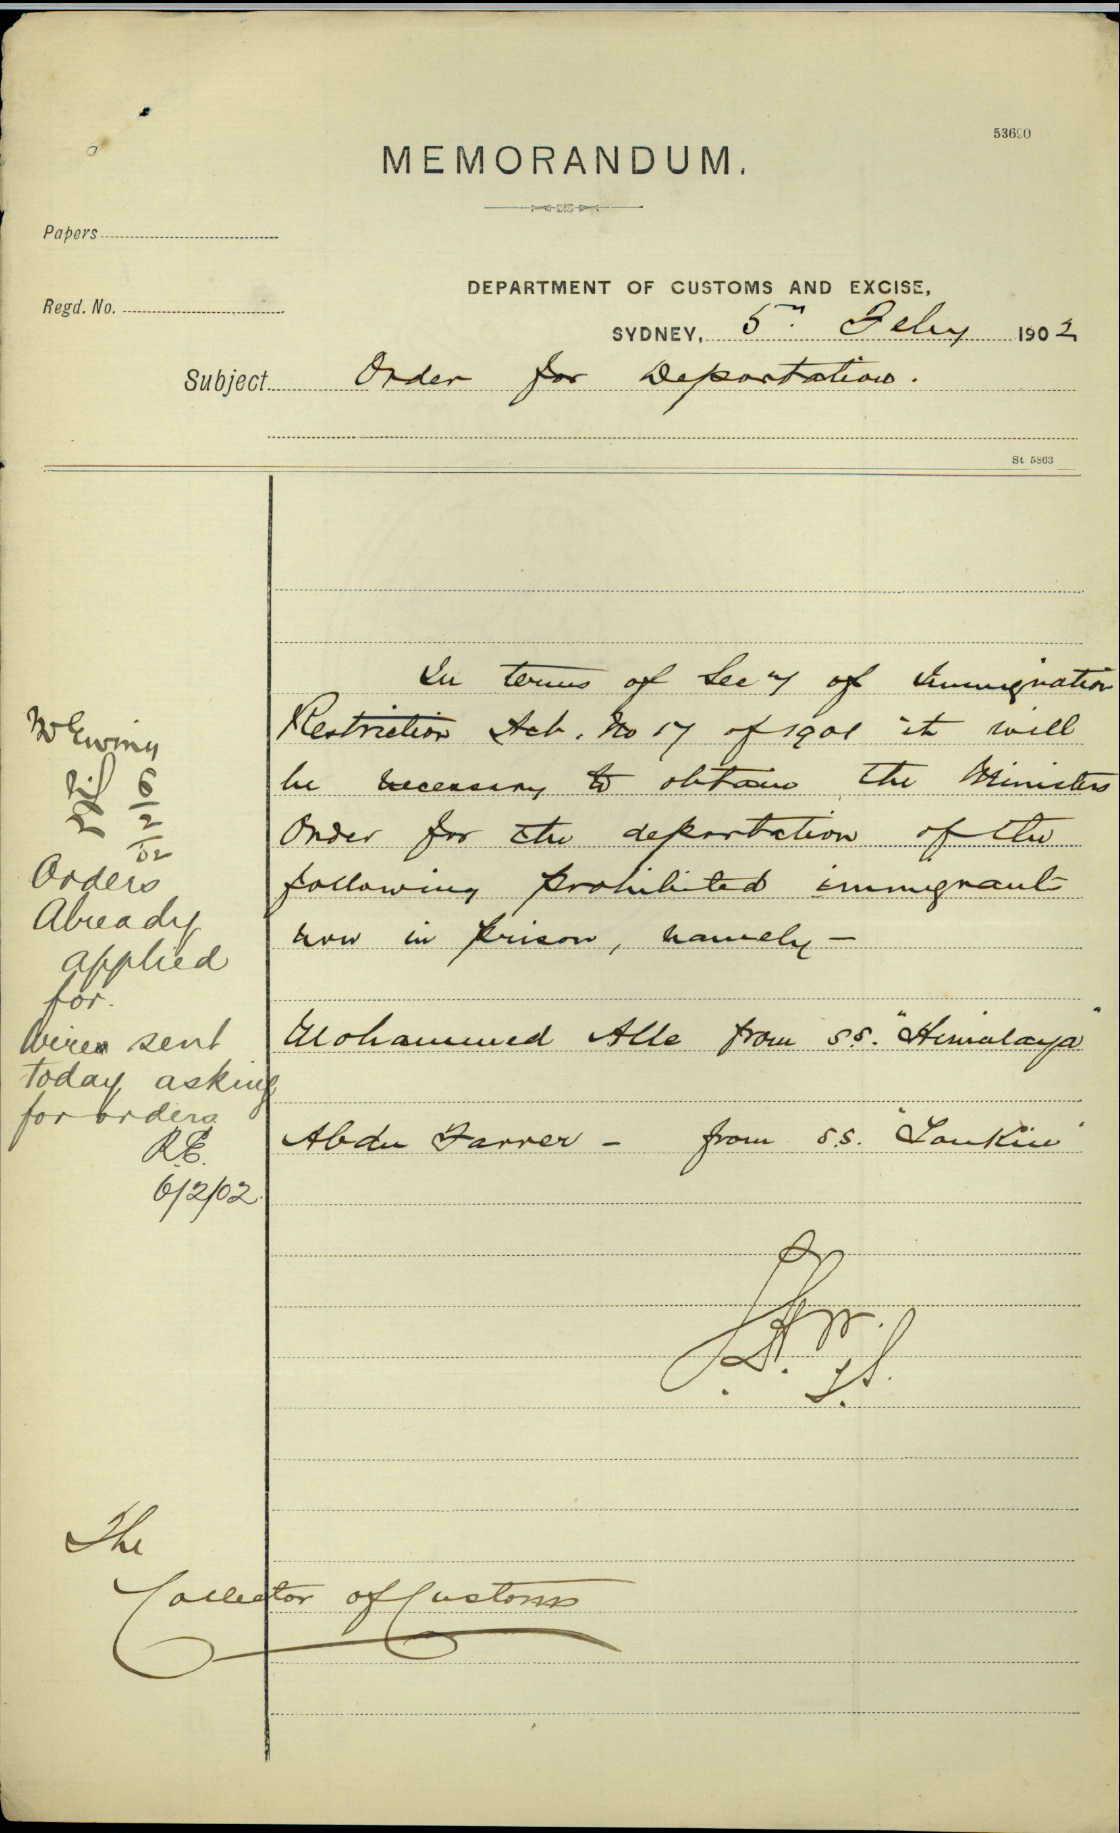 MEMORANDUM.
Papers
Regd. No.
DEPARTMENT OF CUSTOMS AND EXCISE,
SYDNEY, 5th Feby 1902
Subject Order for Deportation.
St 5863
In terms of Sec 7 of Immigration
Restriction Act. No 17 of 1901 it will
be necessary to obtain the Ministers
Order for the deportation of the
following prohibited immigrants
now in prison, namely –
Mohammed Alle from s.s. "Himalaya"
Abdu Farrer – from s.s. "Tonkin"
Mr Ewing
6/2/02
Orders
Already
applied
for.
Wires sent
today asking
for orders
R.E.
6/2/02.
The
Collector of Customs